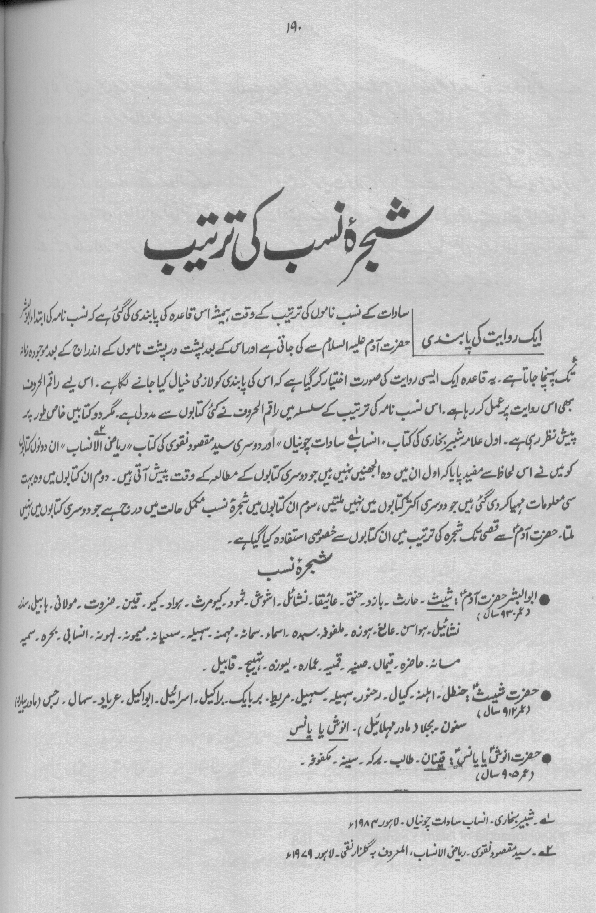 ۱۹۰
شجرۂ نسب کی ترتیب
ایک روایت کی پابندی
سادات کے نسب ناموں کی ترتیب کے وقت ہمیشہ اس قاعدہ کی پابندی کی گئی ہے کہ نسب نامہ کی ابتداء ابوالبشر
حضرت آدم علیہ السلام سے کی جاتی ہے اور اس کے بعد پشت در پشت ناموں کے اندراج کے بعد موجودہ زمانہ
تک پہنچا جاتا ہے۔ یہ قاعدہ ایک ایسی روایت کی صورت اختیار کر گیا ہے کہ اس کی پابندی کو لازمی خیال کیا جانے لگا ہے۔ اس لیے راقم الحروف
بھی اس روایت پر عمل کر رہا ہے۔ اس نسب نامہ کی ترتیب کے سلسلہ میں راقم الحروف نے کئی کتابوں سے مدد لی ہے۔ مگر دو کتابیں خاص طور پر
پیش نظر رہی ہے۔ اول علامہ شبیر بخاری کی کتاب، انساب سادات چونیاں" اور دوسری سید مقصود نقوی کی کتاب "ریاض الانساب" ان دونوں کتابوں
کو میں نے اس لحاظ سے مفید پایا کہ اول ان میں وہ الجھنیں نہیں ہیں جو دوسری کتابوں کے مطالعہ کے وقت پیش آتی ہیں۔ دوم ان کتابوں میں وہ بہت
سی معلومات مہیا کر دی گئی ہیں جو دوسری اکثر کتابوں میں نہیں ملتیں، سوم ان کتابوں میں شجرۂ نسب مکمل حالت میں درج ہے جو دوسری کتابوں میں نہیں
ملتا۔ حضرت آدمؑ سے قصی تک شجرہ کی ترتیب میں ان کتابوں سے خصوصی استفادہ کیا گیا ہے۔
شجرۂ نسب
● ابوالبشر حضرت آدمؑ: شیث۔ حارث۔ بازد۔ حنق۔ عانیقا۔ نشائل۔ اغوش۔ ثمود۔ کیومرث۔ ہواد۔ کیو۔ قیین۔ ضروت۔ مولانی۔ ہابیل۔
(عمر ۹۳۰ سال)
نشائیل۔ ہواسن۔ عالیغ۔ ہوزہ۔ ملغوفہ۔ سبدہ۔ اسماء۔ سمانہ۔ مہمنہ۔ سہیلہ۔ سعیانہ۔ میمونہ۔ لہونہ۔ انسابی۔ بحرہ۔ سمیہ
مسانہ۔ حافزہ۔ قیماں۔ صفیہ۔ قمیہ۔ عمارہ۔ لیوزہ۔ تہییج۔ قابیل۔
● حضرت شیثؑ: حنظل۔ اہلعذ۔ کیال۔ رحنور۔ سہیلہ۔ سہیل۔ مربط۔ بربایک۔ براکیل۔ اسرائیل۔ ابواکیل۔ عرباید۔ سمال۔ رجس
(عمر ۹۱۲ سال)
سفون۔ بجلا (مادر مہلائیل)۔ انوش یا یانس
● حضرت انوشؑ یا یانسؑ: قینان۔ طالب۔ برکہ۔ سینہ۔ مکفوفہ۔
(عمر ۹۰۵ سال)
۱ـ شبیر بخاری۔ انساب سادات چونیاں۔ لاہور ۱۹۸۴ء
۲ـ سید مقصود نقوی۔ ریاض الانساب، المعروف بہ گلزار نقی۔ لاہور ۱۹۷۹ء